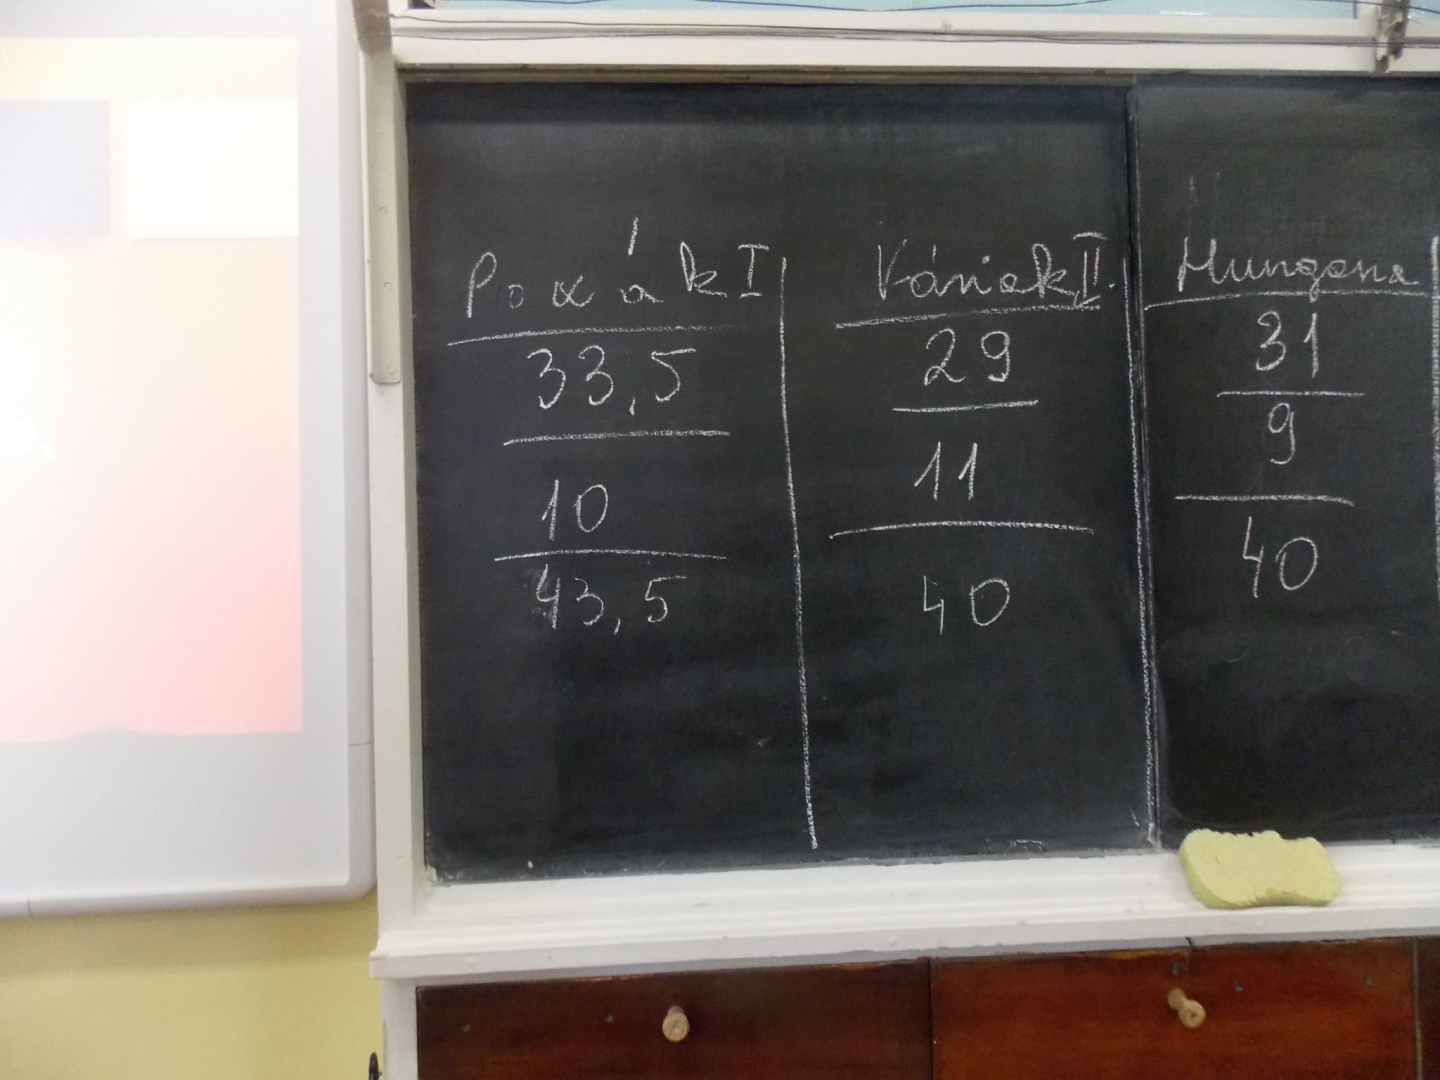 Poxák I
33,5
10
43,5
Váriak II.
29
11
40
Hungana
31
9
40